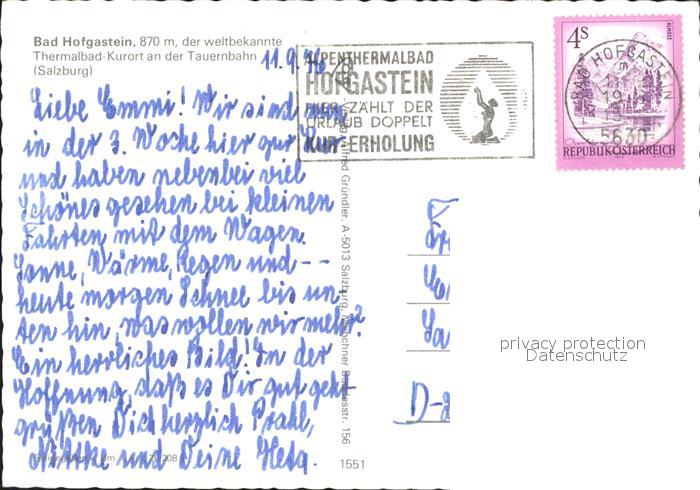 Bad Hofgastein, 870 m, der weltbekannte
Thermalbad-Kurort an der Tauernbahn
(Salzburg)
11.9.
ALPENTHERMALBAD
HOFGASTEIN
HIER ZÄHLT DER
URLAUB DOPPELT
KUR-ERHOLUNG
4S
ALMSEE
BAD HOFGASTEIN
5630
REPUBLIK ÖSTERREICH
Liebe Emmi! Wir sind nun
in der 3. Woche hier zur Kur
und haben nebenbei viel
Schönes gesehen bei kleinen
Fahrten mit dem Wagen.
Sonne, Wärme, Regen und --
heute morgen Schnee bis un-
ten hin, was wollen wir mehr?
Ein herrliches Bild! In der
Hoffnung, daß es Dir gut geht
grüßen Dich herzlich
und Deine
Alfred Gründler, A-5013 Salzburg, Münchner Bundesstr. 156
1551
D-
privacy protection
Datenschutz